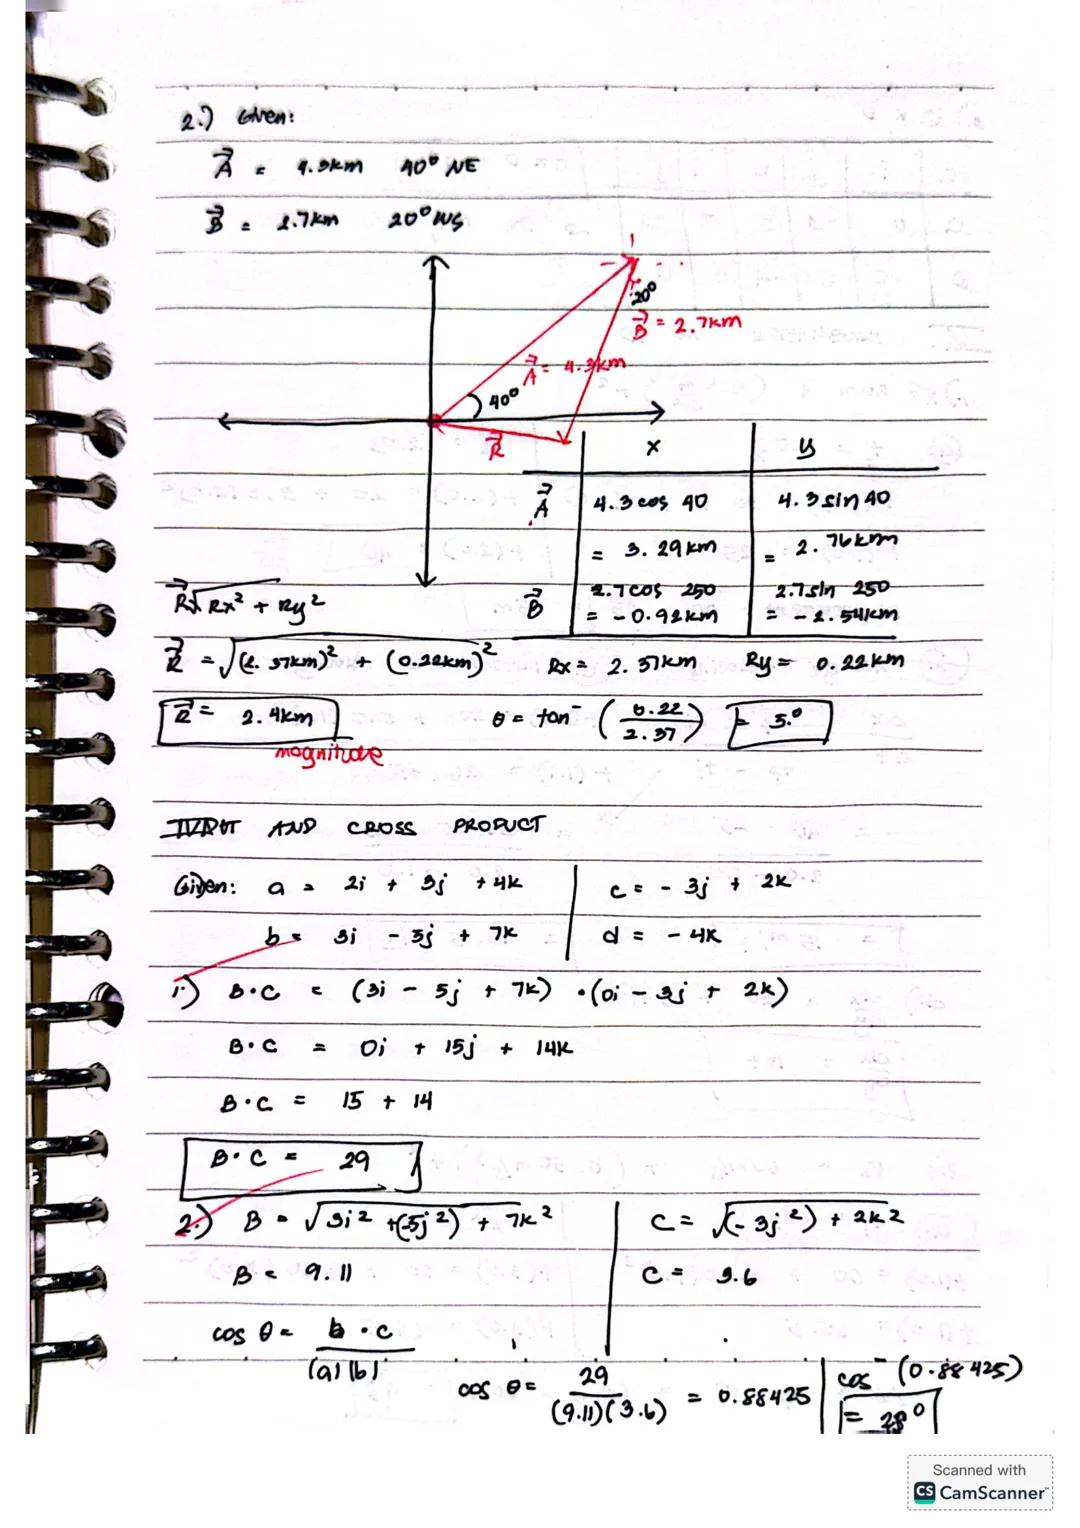 2.) Given:
A = 4.3km 40° NE
B = 2.7km 20° WS
20°
B = 2.7km
A = 4.3km
40°
R
x y
A 4.3 cos 40 4.3 sin 40
= 3.29 km = 2.76 km
B 2.7 cos 250 2.7 sin 250
= -0.92km = -2.54km
R √Rx² + Ry²
R = √(2.37km)² + (0.22km)² Rx = 2.37km Ry = 0.22km
R = 2.4km θ = tan⁻ (0.22/2.37) = 5.°
magnitude
DOT AND CROSS PRODUCT
Given: a = 2i + 3j + 4k c = - 3j + 2k
b = 3i - 5j + 7k d = - 4k
1.) B·C = (3i - 5j + 7k) · (0i - 3j + 2k)
B·C = 0i + 15j + 14k
B·C = 15 + 14
B·C = 29
2.) B = √3i² +(-5j²) + 7k² C = √(-3j²) + 2k²
B = 9.11 C = 3.6
cos θ = b·c / |a| |b|
cos θ = 29 / (9.11)(3.6) = 0.88425 cos⁻ (0.88425)
= 28°
Scanned with
CS CamScanner